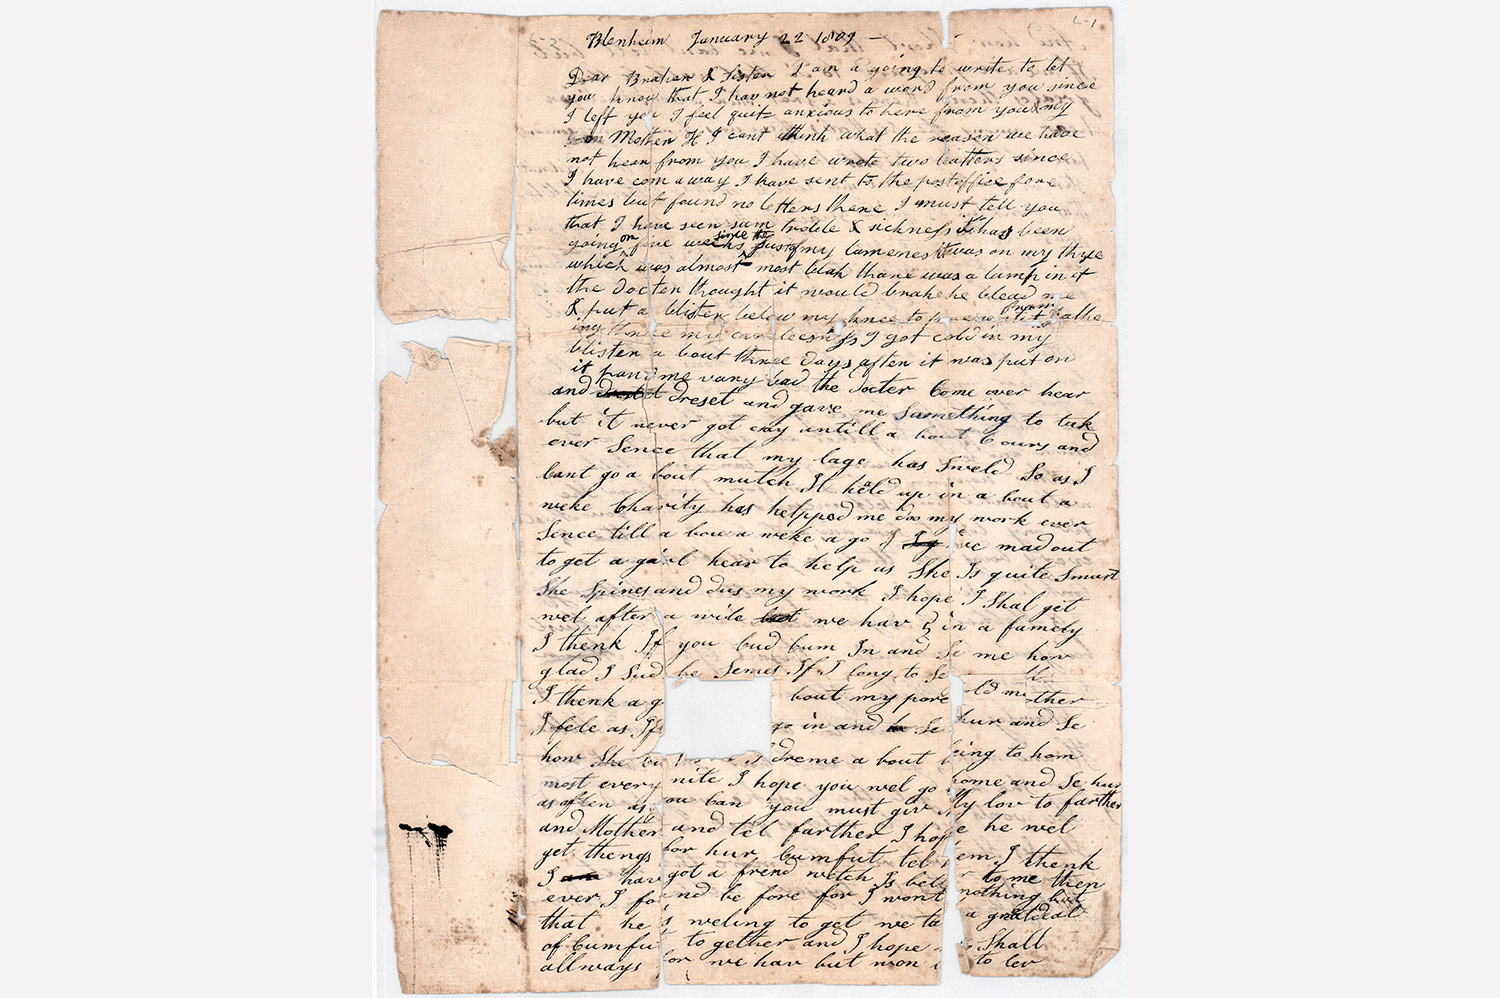 L-1
Blenheim January 22 1809 —
Dear Brother & Sister I am a going to write to let
you know that I hav not heard a word from you since
I left you I feel quite anxious to here from you & my
Mother H I cant think what the reason we have
not hear from you I have wrote two leatters since
I have com away I have sent to the postoffice fore
times but found no letters there I must tell you
that I have seen sum troble & sickness it has been
going on five weeks since the furst of my lameness it was on my thye
which was almost most blak thare was a lump in it
the docter thought it would brake he blead me
& put a blister below my knee to it from gathe
ing threw my carelesness I got cold in my
blister a bout three days after it was put on
it me vary bad the docter Come over hear
and dreset and gave me Something to tak
but it never got esay untill a bout 6 ours and
ever Sence that my lage has Sweld So as I
Cant go a bout mutch It heald up in a bout a
weke Charity has helpped me doo my work ever
Sence till a bout a weke a go I we mad out
to get a garl hear to help us She Is quite Smart
She Spines and dus my work I hope I Shal get
wel after a wile we hav 5 in a famely
I thenk If you Cud Cum In and Se me how
glad I Sud be Semes If I long to Se
I thenk a g bout my pore old mother
I fele as If go in and Se hur and Se
how She dreme a bout being to hom
most every nite I hope you wel go home and Se hur
as often as you Can you must giv My lov to farther
and Mother and tel farther I hope he wel
get thengs for hur Cumfut tel em I thenk
I hav got a frend witch Is beter to me then
ever I fo nd be fore for I wont nothing but
that he is weling to get we ta a grat deal
of Cumfut to gether and I hope we Shall
allways for we hav but won to lov